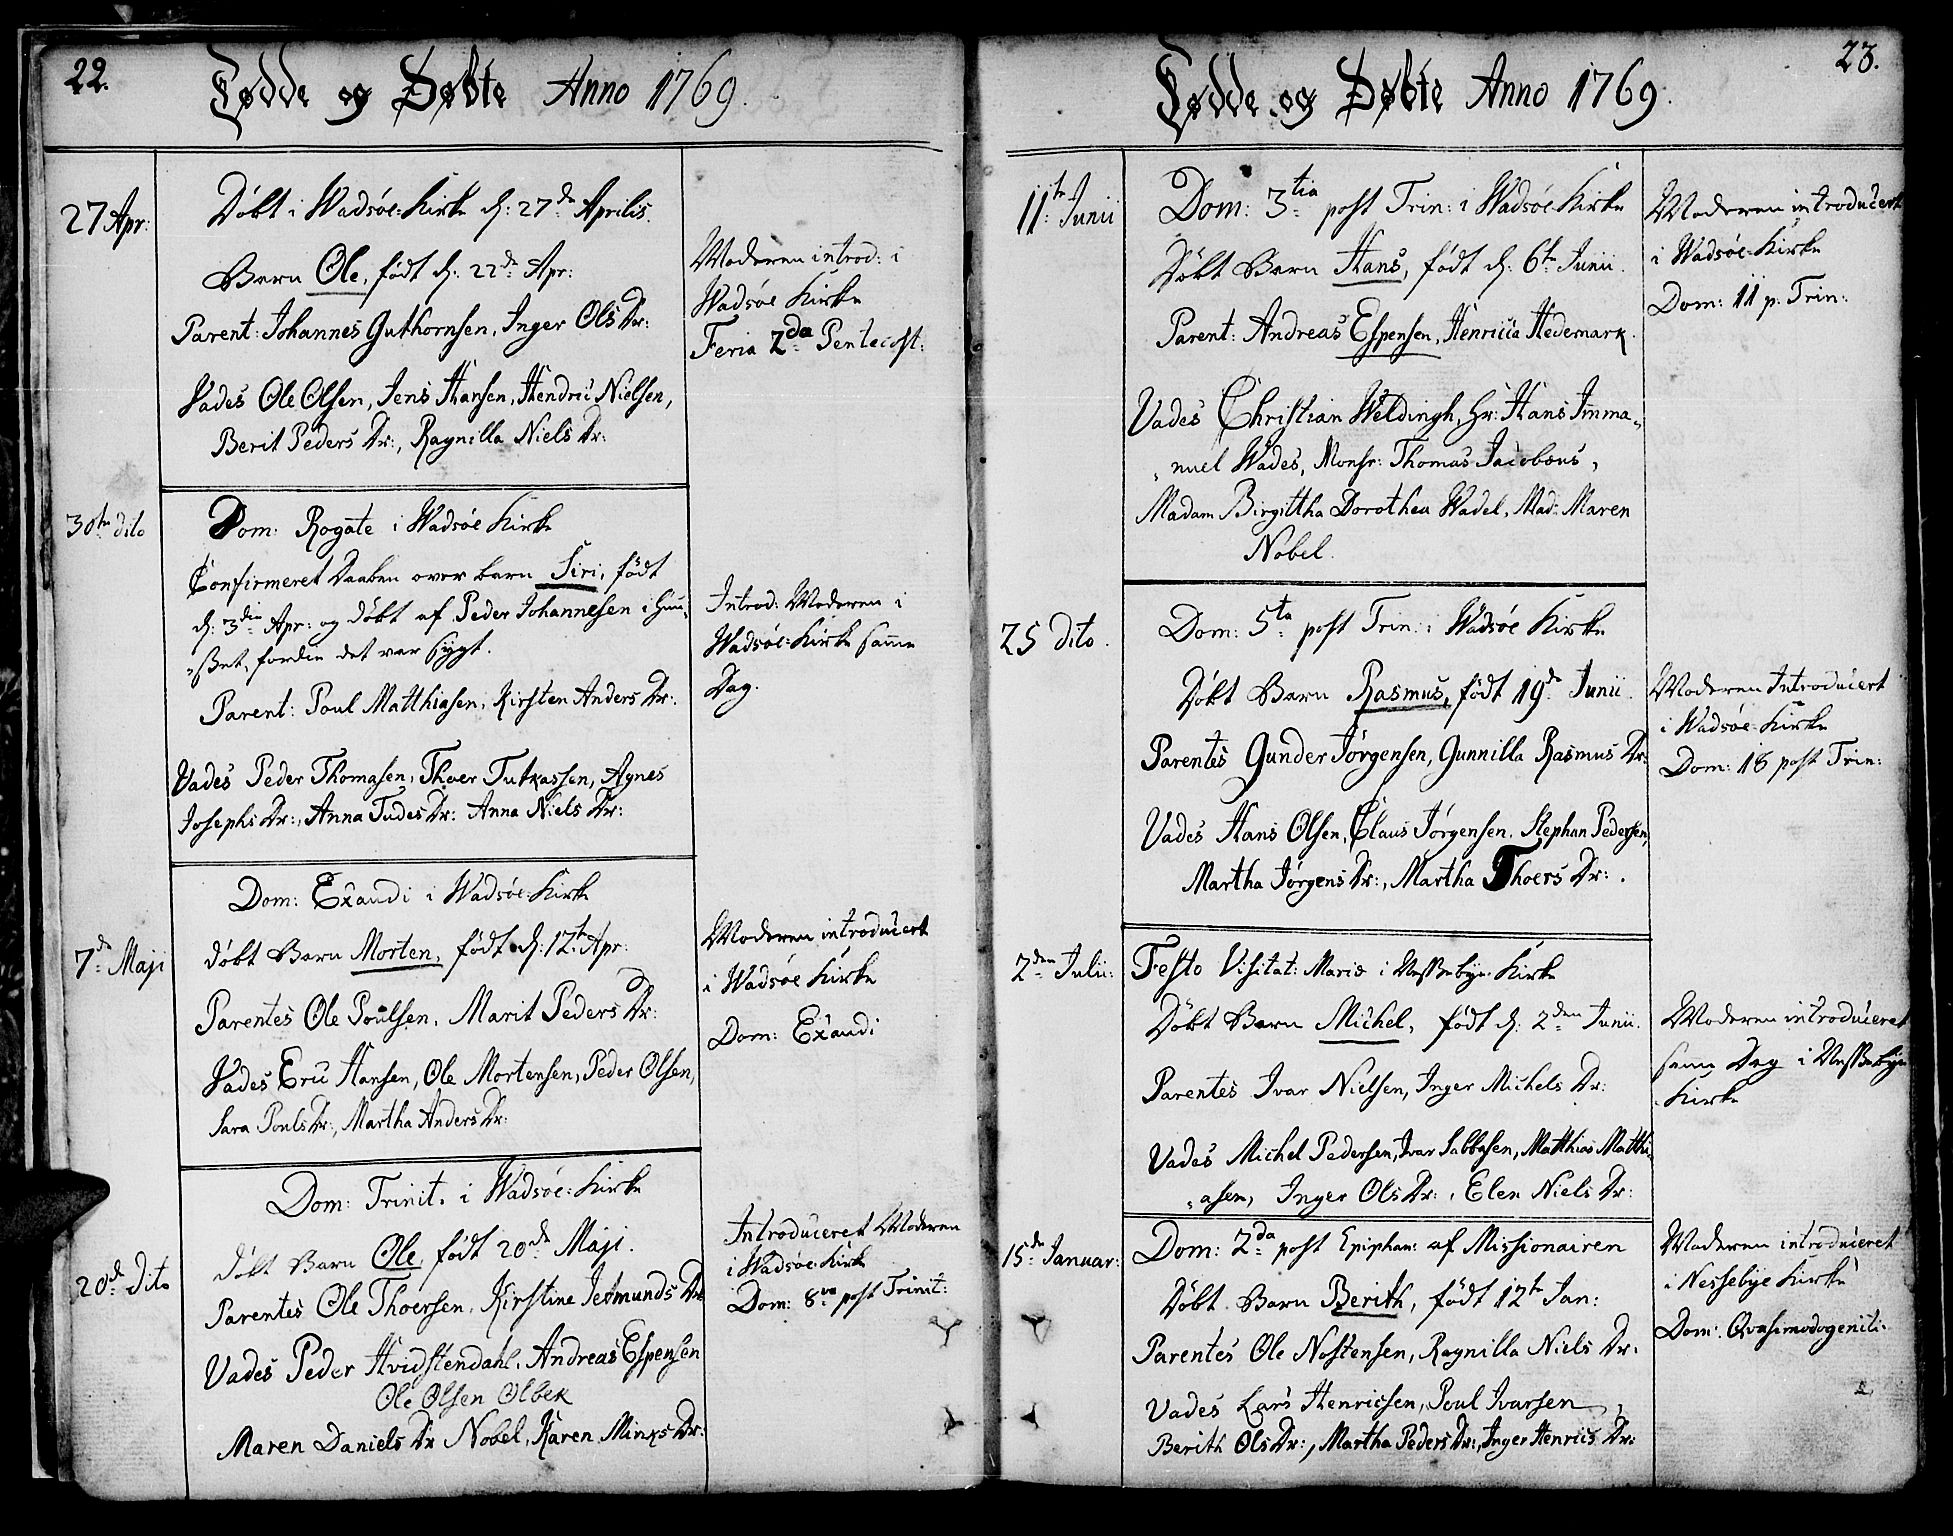 22.
Fødde og Døbte Anno 1769.
27 Apr:
Døbt i Wadsøe Kirke d: 27de Aprilis.
Barn Ole, født d: 22de Apr:
Parent: Johannes Guthornsen, Inger Ols Dr:
Vades Ole Olsen, Jens Hansen, Hendric Nielsen,
Berit Peders Dr:, Ragnilla Niels Dr:
Moderen introd: i
Wadsøe Kirke
Feria 2da Pentecost:
30te dito
Dom: Rogate i Wadsøe Kirke
Confirmeret Daaben over barn Siri, født
d: 3die Apr: og døbt af Peder Johannesen i Huu-
-set, fordie det var sygt.
Parent: Poul Matthiasen, Kirsten Anders Dr:
Vades Peder Thomasen, Thoer Tutkassen, Agnes
Josephs Dr:, Anna Tudes Dr: Anna Niels Dr:
Introd: Moderen i
Wadsøe Kirke samme
Dag.
7de Maji
Dom: Exaudi i Wadsøe Kirke
døbt Barn Morten, født d: 12te Apr:
Parentes Ole Poulsen, Marit Peders Dr:
Vades Eric Hansen, Ole Mortensen, Peder Olsen,
Sara Pouls Dr:, Martha Anders Dr:
Moderen introducert
i Wadsøe Kirke
Dom: Exaudi
20de dito
Dom: Trinit. i Wadsøe Kirke
døbt Barn Ole, født 20de Maji.
Parentes Ole Thoersen, Kirstine Jetmunds Dr:
Vades Peder Hvidstendahl, Andreas Espensen
Ole Olsen Olbek
Maren Daniels Dr Nobel, Karen Minks Dr:
Introduceret Moderen
i Wadsøe Kirk
Dom: 8va post Trinit:
23.
Fødde og Døbte Anno 1769.
11te Junii
Dom: 3tia post Trin: i Wadsøe Kirke
Døbt Barn Hans, født d: 6te Junii.
Parent: Andreas Espensen, Henrica Hedemark.
Vades Christian Weldingh, Hr: Hans Imma-
-nuel Wades, Monsr: Thomas Jacobæus,
Madam Birgittha Dorothea Wadel, Mad: Maren
Nobel.
Moderen introducert
i Wadsøe Kirke
Dom: 11 p. Trin:
25 dito.
Dom: 5ta post Trin: i Wadsøe Kirke
Døbt Barn Rasmus, født 19de Junii.
Parentes Gunder Jørgensen, Gunnilla Rasmus Dr:
Vades Hans Olsen, Claus Jørgensen, Stephan Pedersen,
Martha Jørgens Dr:, Martha Thoers Dr:.
Moderen Introducert
i Wadsøe Kirke
Dom: 18 post Trin:
2den Julii:
Festo Visitat: Mariæ i Nessebye Kirke
Døbt Barn Michel, født d: 2den Junii.
Parentes Ivar Nielsen, Inger Michels Dr:
Vades Michel Pedersen, Ivar Sabbasen, Matthias Matthi-
-asen, Inger Ols Dr:, Elen Niels Dr:
Moderen introduceret
samme Dag i Nessebye
Kirke
15de Januar:
Dom: 2da post Epiphan: af Missionairen
Døbt Barn Berith, født 12te Jan:
Parentes Ole Nostensen, Ragnilla Niels Dr:
Vades Lars Henricsen, Poul Ivarsen,
Berith Ols Dr:, Martha Peders Dr:, Inger Henrics Dr:
Moderen introduceret
i Nessebye Kirke
Dom: Qvasimodogeniti.